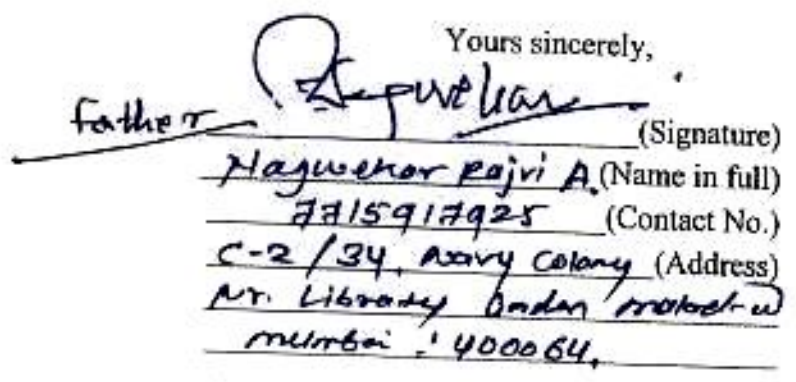 Yours sincerely,
father
(Signature)
Nagwekar Rajvi A. (Name in full)
7715917925 (Contact No.)
C-2/34, Navy Colony (Address)
Nr. Library
mumbai : 400064.